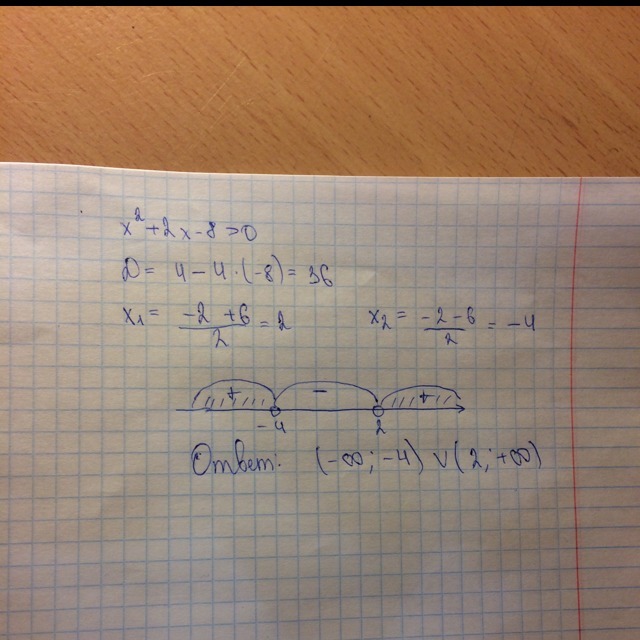 x² + 2x - 8 > 0
D = 4 - 4 · (-8) = 36
x₁ = (-2 + 6)/2 = 2 x₂ = (-2 - 6)/2 = -4
+ - +
-4 2
Ответ: (-∞; -4) ∨ (2; +∞)